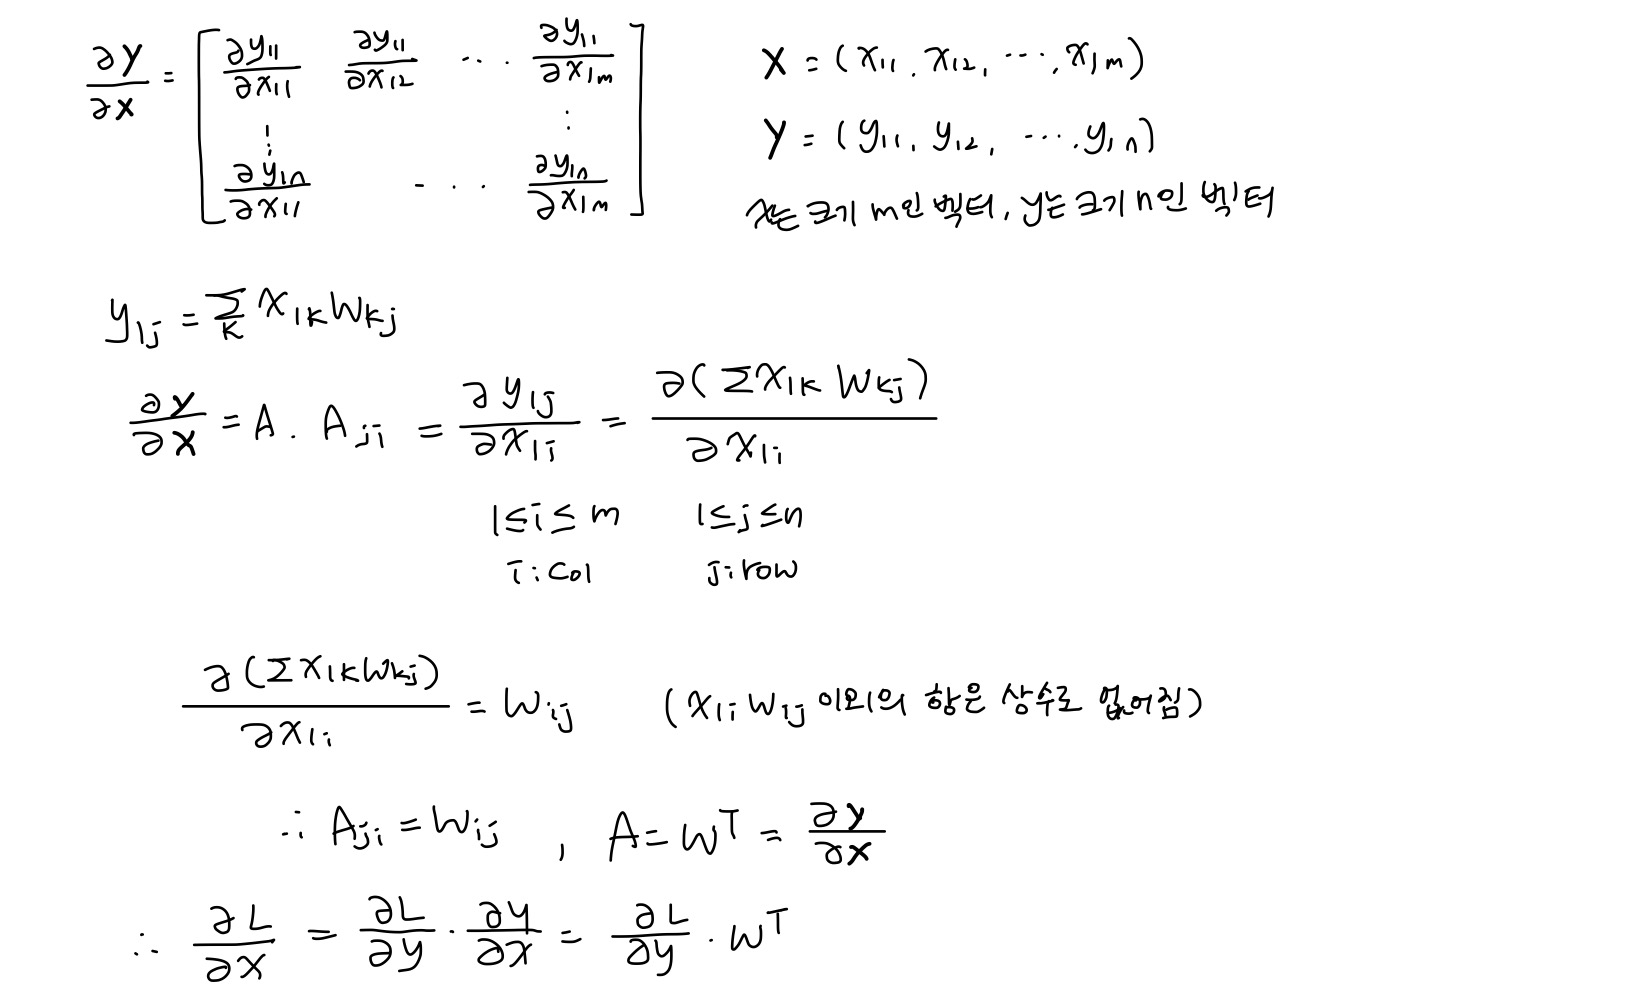 ∂Y/∂X = [ ∂y₁₁/∂x₁₁ ∂y₁₁/∂x₁₂ ... ∂y₁₁/∂x₁ₘ
⋮ ⋮
∂y₁ₙ/∂x₁₁ ... ∂y₁ₙ/∂x₁ₘ ]
X = (x₁₁, x₁₂, ..., x₁ₘ)
Y = (y₁₁, y₁₂, ..., y₁ₙ)
x는 크기 m인 벡터, y는 크기 n인 벡터
y₁ⱼ = Σₖ x₁ₖ Wₖⱼ
∂Y/∂X = A. Aⱼᵢ = ∂y₁ⱼ/∂x₁ᵢ = ∂(Σx₁ₖ Wₖⱼ)/∂x₁ᵢ
1≤i≤m 1≤j≤n
i:col j:row
∂(Σx₁ₖWₖⱼ)/∂x₁ᵢ = Wᵢⱼ (x₁ᵢWᵢⱼ 이외의 항은 상수로 없어짐)
∴ Aⱼᵢ = Wᵢⱼ , A = Wᵀ = ∂Y/∂X
∴ ∂L/∂X = ∂L/∂y · ∂y/∂x = ∂L/∂y · Wᵀ